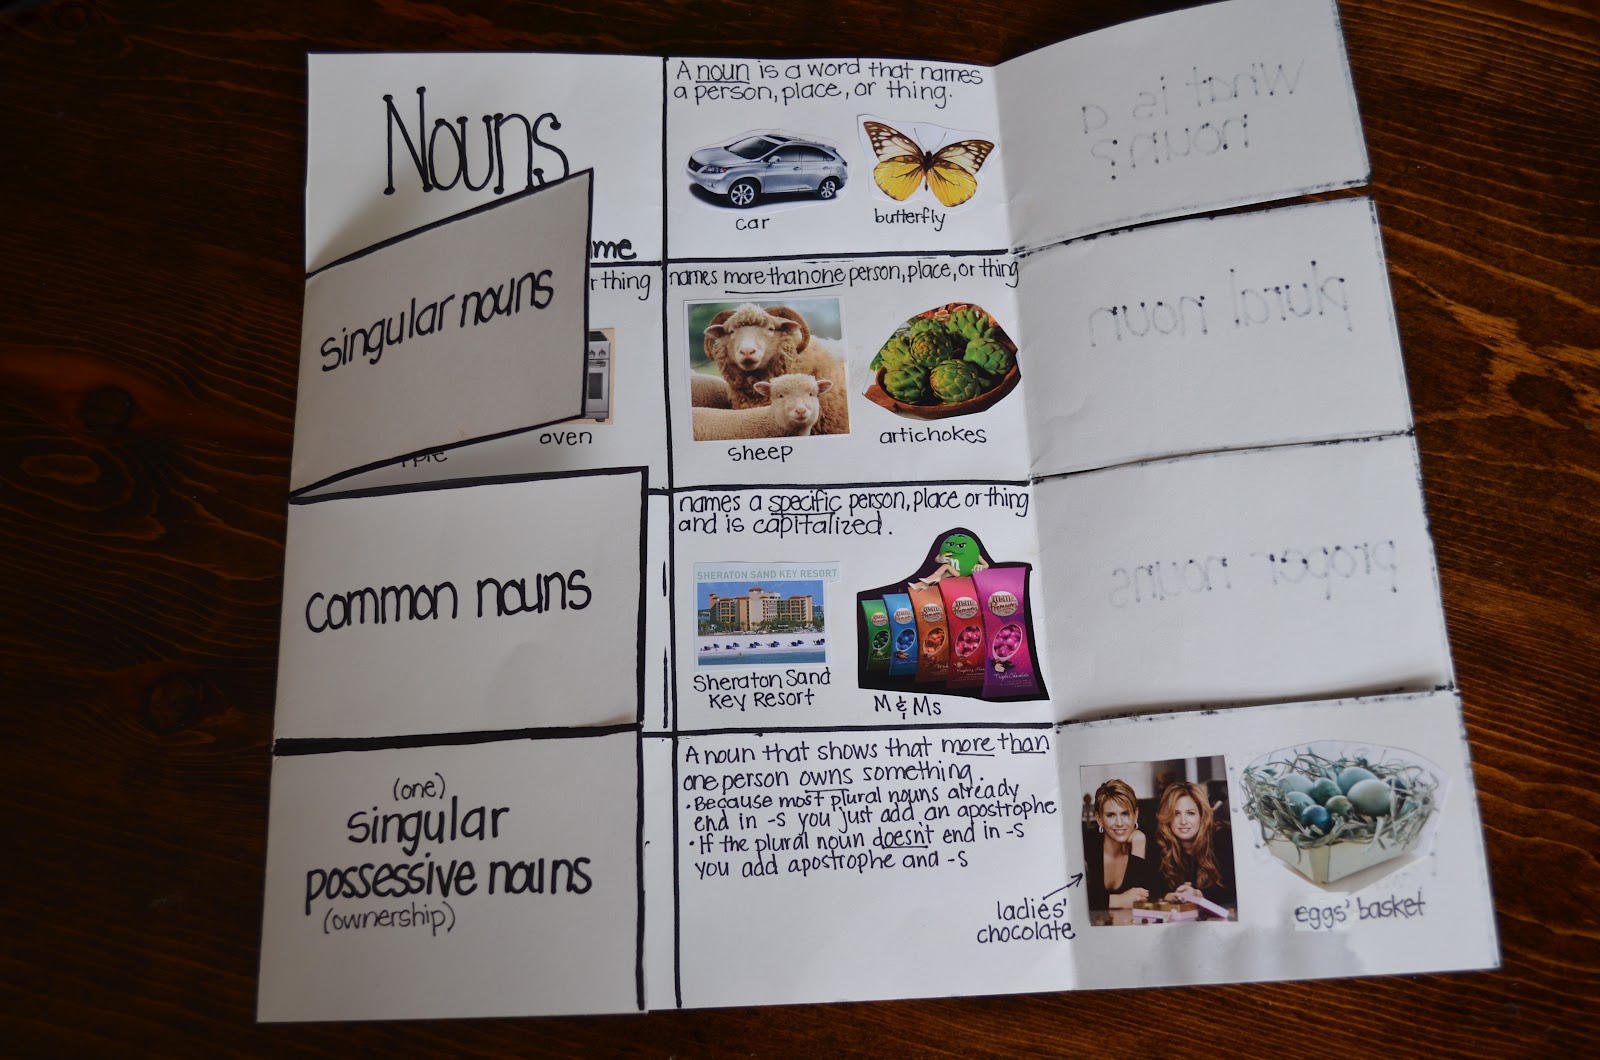 Nouns
me
A noun is a word that names
a person, place, or thing.
car
butterfly
What is a
noun?
singular nouns
r thing
oven
pple
names more than one person, place, or thing
sheep
artichokes
plural noun
common nouns
names a specific person, place or thing
and is capitalized.
SHERATON SAND KEY RESORT
Sheraton Sand
Key Resort
M & Ms
proper nouns
(one)
singular
possessive nouns
(ownership)
A noun that shows that more than
one person owns something.
• Because most plural nouns already
end in -s you just add an apostrophe
• If the plural noun doesn't end in -s
you add apostrophe and -s
ladies'
chocolate
eggs' basket